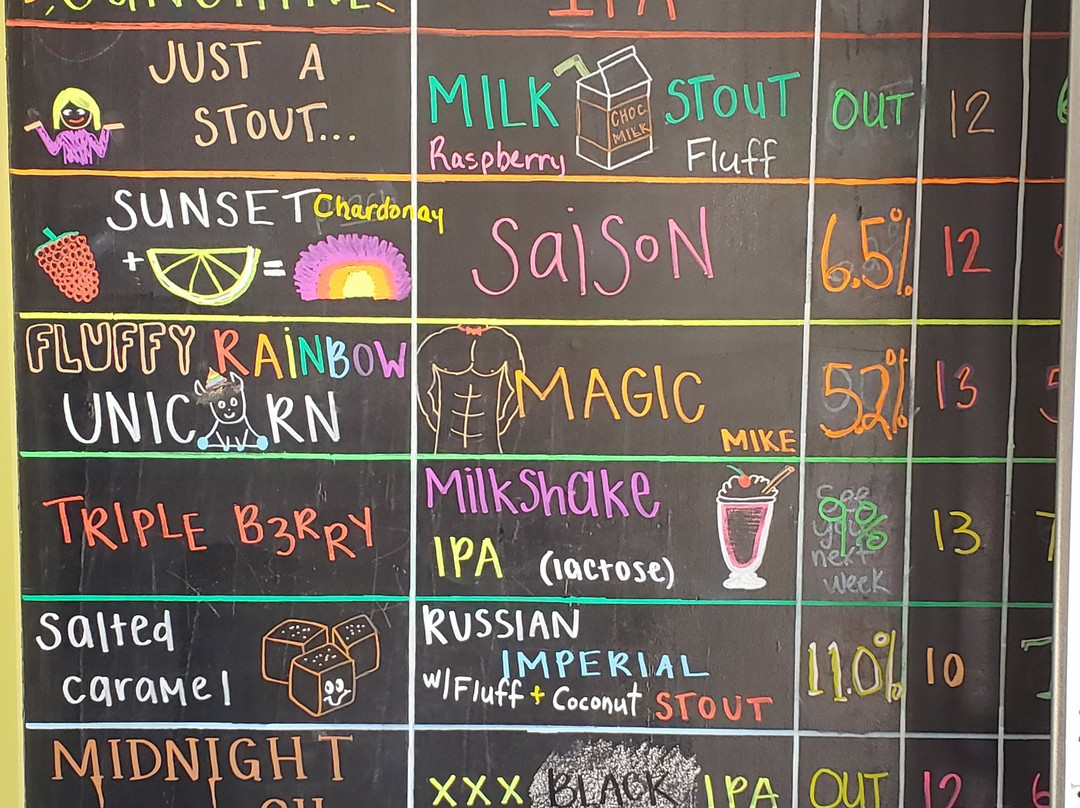 IPA
JUST A
STOUT...
MILK STOUT
CHOC
MILK
Raspberry Fluff
OUT
12
SUNSET Chardonay
+ =
SaiSoN
6.5%
12
FLUFFY RAiNBOW
UNICRN
MAGIC
MIKE
5.2%
13
TRIPLE B3RRY
MilkShake
IPA (lactose)
9%
See
you
next
week
13
Salted
caramel
RUSSIAN
IMPERIAL
w/Fluff + Coconut STOUT
11.0%
10
MIDNIGHT
XXX BLACK IPA
OUT
12